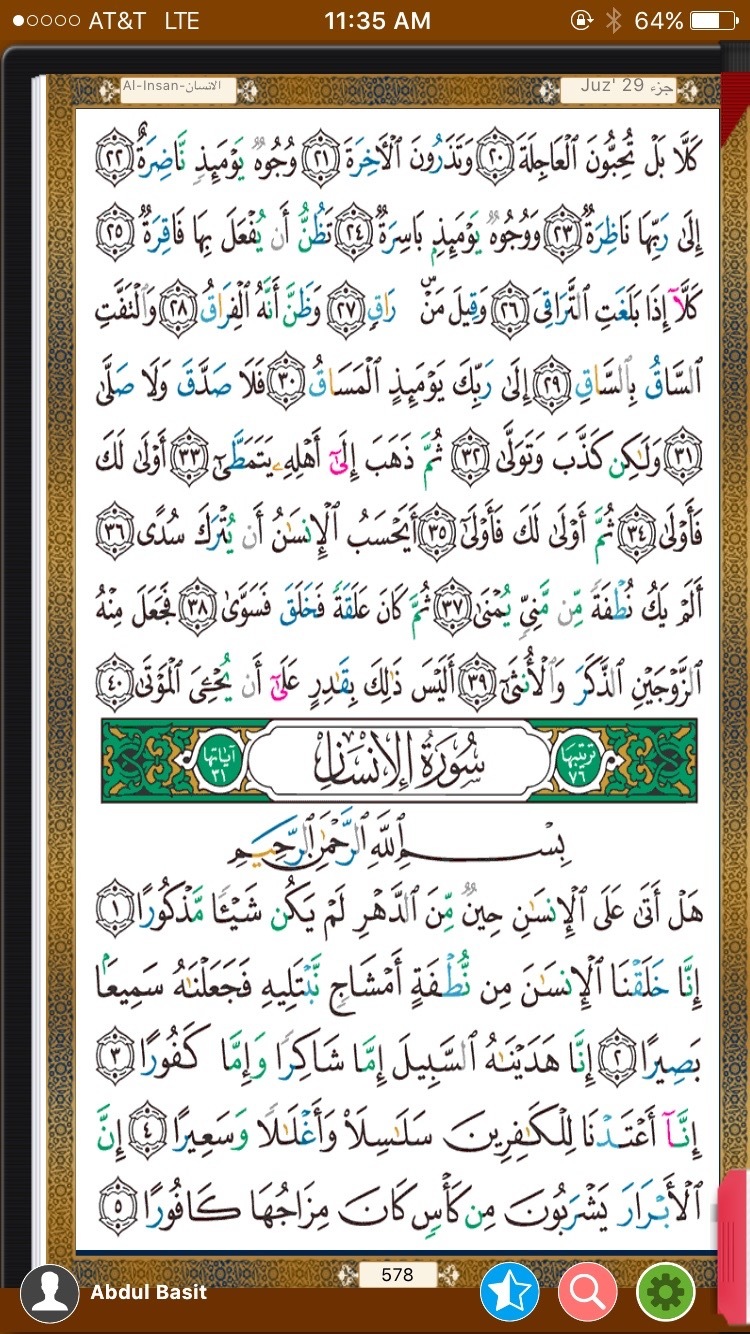 AT&T LTE 11:35 AM 64%
Al-Insan-الانسان Juz' 29 جزء
كَلَّا بَلْ تُحِبُّونَ ٱلْعَاجِلَةَ ٢٠ وَتَذَرُونَ ٱلْأَخِرَةَ ٢١ وُجُوهٌ يَوْمَئِذٍ نَّاضِرَةٌ ٢٢
إِلَىٰ رَبِّهَا نَاظِرَةٌ ٢٣ وَوُجُوهٌ يَوْمَئِذٍۭ بَاسِرَةٌ ٢٤ تَظُنُّ أَن يُفْعَلَ بِهَا فَاقِرَةٌ ٢٥
كَلَّآ إِذَا بَلَغَتِ ٱلتَّرَاقِىَ ٢٦ وَقِيلَ مَنْۜ رَاقٍ ٢٧ وَظَنَّ أَنَّهُ ٱلْفِرَاقُ ٢٨ وَٱلْتَفَّتِ
ٱلسَّاقُ بِٱلسَّاقِ ٢٩ إِلَىٰ رَبِّكَ يَوْمَئِذٍ ٱلْمَسَاقُ ٣٠ فَلَا صَدَّقَ وَلَا صَلَّىٰ
٣١ وَلَـٰكِن كَذَّبَ وَتَوَلَّىٰ ٣٢ ثُمَّ ذَهَبَ إِلَىٰٓ أَهْلِهِۦ يَتَمَطَّىٰٓ ٣٣ أَوْلَىٰ لَكَ
فَأَوْلَىٰ ٣٤ ثُمَّ أَوْلَىٰ لَكَ فَأَوْلَىٰٓ ٣٥ أَيَحْسَبُ ٱلْإِنسَـٰنُ أَن يُتْرَكَ سُدًى ٣٦
أَلَمْ يَكُ نُطْفَةً مِّن مَّنِىٍّ يُمْنَىٰ ٣٧ ثُمَّ كَانَ عَلَقَةً فَخَلَقَ فَسَوَّىٰ ٣٨ فَجَعَلَ مِنْهُ
ٱلزَّوْجَيْنِ ٱلذَّكَرَ وَٱلْأُنثَىٰٓ ٣٩ أَلَيْسَ ذَٰلِكَ بِقَـٰدِرٍ عَلَىٰٓ أَن يُحْـِۧىَ ٱلْمَوْتَىٰ ٤٠
ترتيبها ٧٦ سُورَةُ الإِنْسَانِ آياتها ٣١
بِسْمِ ٱللَّهِ ٱلرَّحْمَـٰنِ ٱلرَّحِيمِ
هَلْ أَتَىٰ عَلَى ٱلْإِنسَـٰنِ حِينٌ مِّنَ ٱلدَّهْرِ لَمْ يَكُن شَيْـًٔا مَّذْكُورًا ١
إِنَّا خَلَقْنَا ٱلْإِنسَـٰنَ مِن نُّطْفَةٍ أَمْشَاجٍ نَّبْتَلِيهِ فَجَعَلْنَـٰهُ سَمِيعًۢا
بَصِيرًا ٢ إِنَّا هَدَيْنَـٰهُ ٱلسَّبِيلَ إِمَّا شَاكِرًا وَإِمَّا كَفُورًا ٣
إِنَّآ أَعْتَدْنَا لِلْكَـٰفِرِينَ سَلَـٰسِلَا۟ وَأَغْلَـٰلًا وَسَعِيرًا ٤ إِنَّ
ٱلْأَبْرَارَ يَشْرَبُونَ مِن كَأْسٍ كَانَ مِزَاجُهَا كَافُورًا ٥
578
Abdul Basit